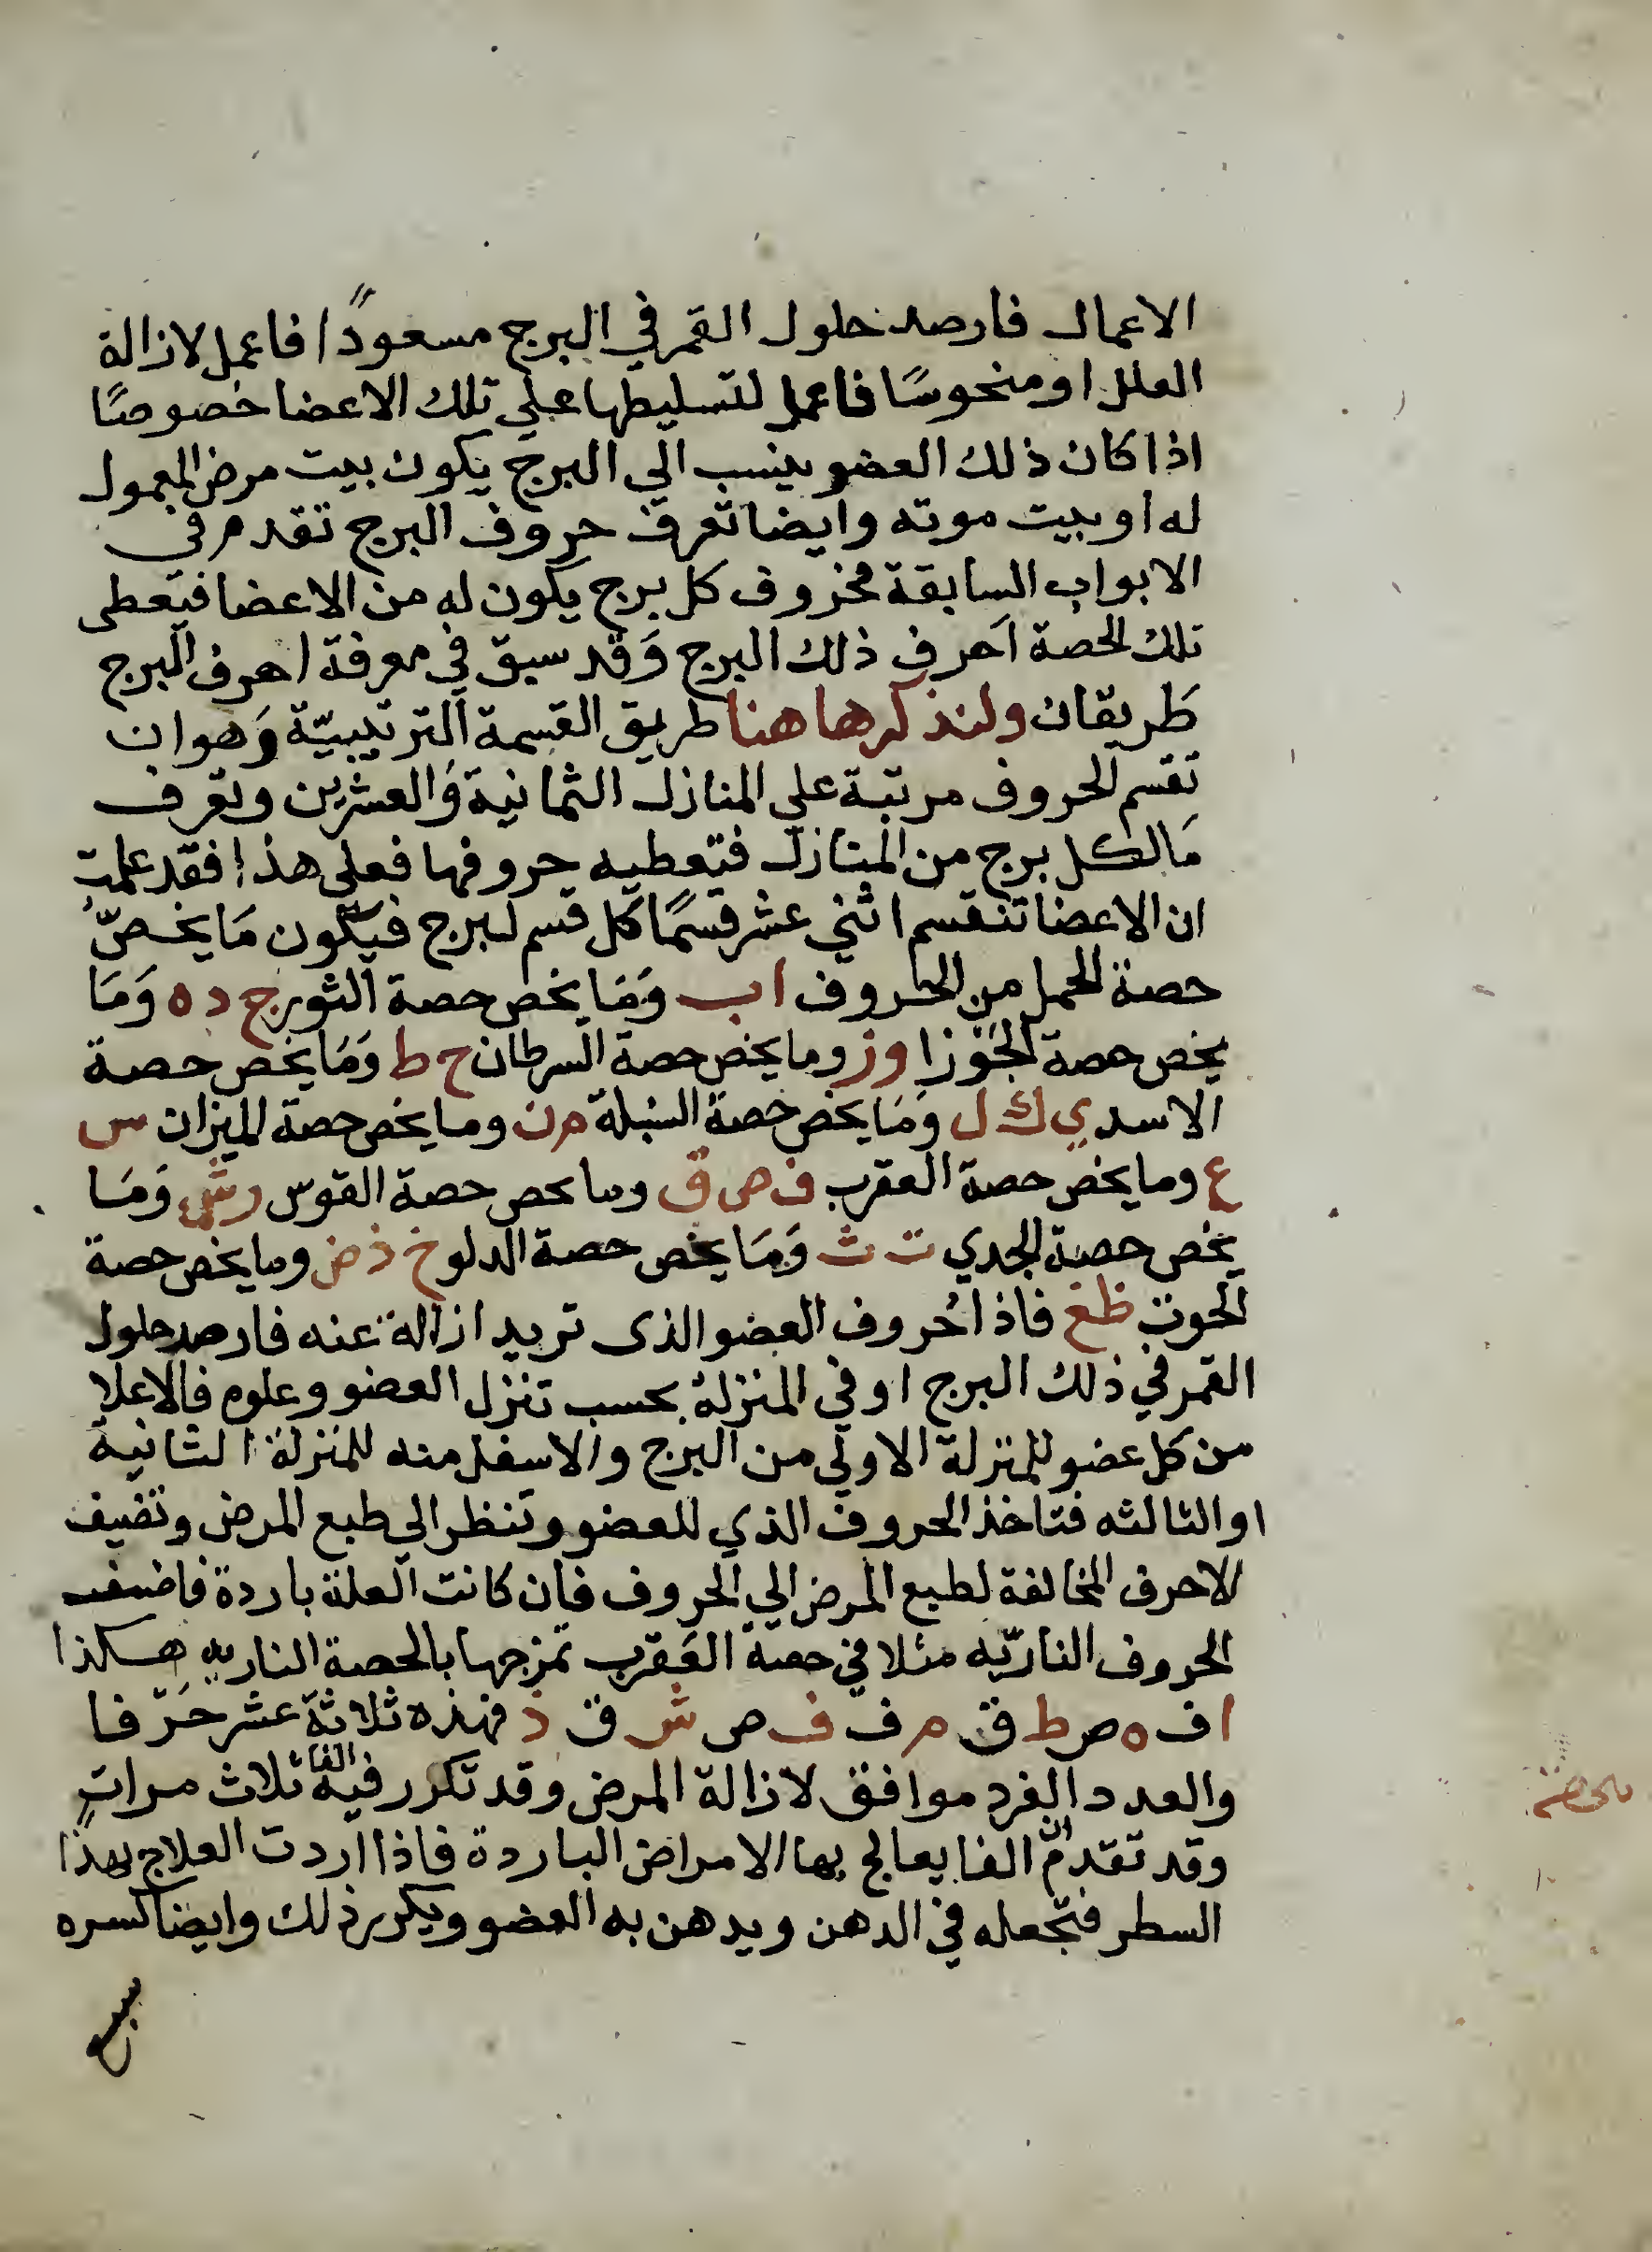 الاعمال فارصد حلول القمر في البرج مسعودًا فاعمل لازالة
العلل او منحوسًا فاعمل لتسليطها علي تلك الاعضا خصوصًا
اذا كان ذلك العضو ينسب الي البرج يكون بيت مرض المعمول
له او بيت موته وايضا تعرف حروف البرج تقدم في
الابواب السابقة فحروف كل برج يكون له من الاعضا فيعطى
تلك الحصة احرف ذلك البرج وَقد سبق في معرفة احرف البرج
طَريقان ولنذكرها هنا طريق القسمة الترتيبيّة وَهو ان
تقسم الحروف مرتبة علي المنازل الثمانية وَالعشرين وتعرف
مَا لكل برج من المنازل فتعطيه حروفها فعلى هذا فقد علمت
ان الاعضا تنقسم اثني عشر قسمًا كل قسم لبرج فيكون مَا يخصّ
حصة الحمل من الحروف ا ب وَمَا يخص حصة الثور ج د ه وَمَا
يخص حصة الجَوزا و ز وما يخص حصة السرطان ح ط وَمَا يخص حصة
الاسد ي ك ل وَمَا يخص حصة السنبلة م ن وما يخص حصة الميزان س
ع وما يخص حصة العقرب ف ص ق وما يحص حصة القوس ر ش وَمَا
يخص حصة الجدي ت ث وَمَا يخص حصة الدلو خ ذ ض وما يخص حصة
الحوت ظ غ فاذا حُروف العضو الذى تريد ازالة عنه فارصد حلول
القمر في ذلك البرج او في المنزلة بحسب تنزل العضو وعلوم فالاعلا
من كل عضو للمنزلة الاولي من البرج والاسفل منه للمنزلة الثانية
او الثالثه فتاخذ الحروف الذي للعضو وتنظر الي طبع المرض وتضيف
الاحرف المخالفة لطبع المرض الي الحروف فان كانت العلة باردة فاضف
الحروف الناريّه مثلا في حصة العَقرب تمزجها بالحصة الناريه هكذا
ا ف ه ص ط ق م ف ف ص ش ق ذ فهذه ثلاثة عشر حَرّفا
والعدد الفرد موافق لازالة المرض وقد تكرر فيه الفا ثلاث مرات
وقد تقدم ان الفا يعالج بها الامراض الباردة فاذا اردت العلاج بهذا
السطر فتجعله في الدهن ويدهن به العضو ويكرر ذلك وايضا كسره
سبع